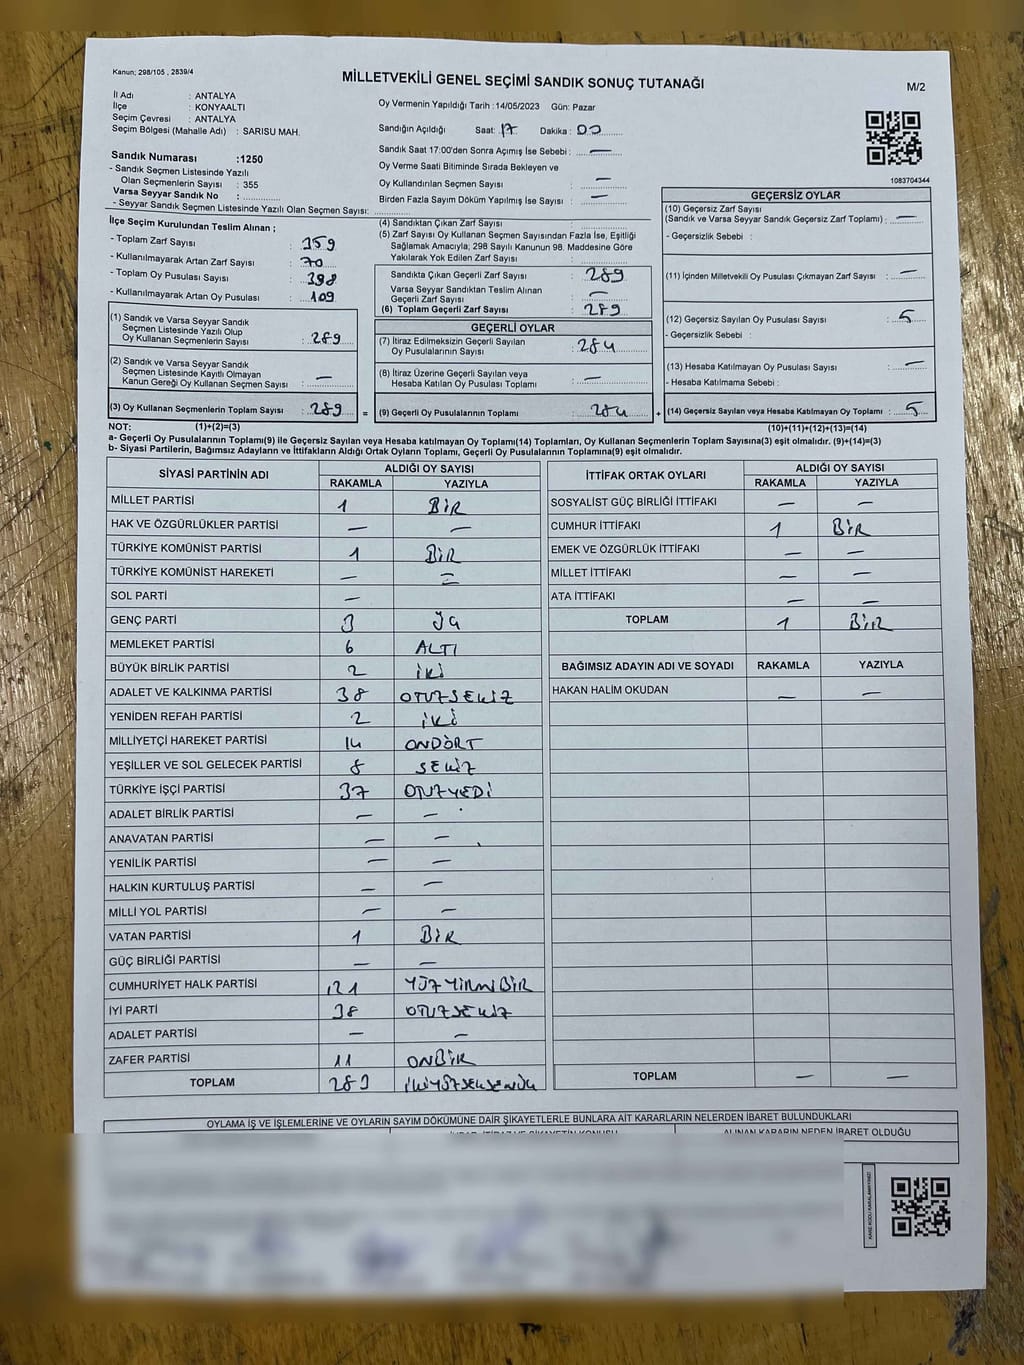 Kanun; 298/105 , 2839/4
MİLLETVEKİLİ GENEL SEÇİMİ SANDIK SONUÇ TUTANAĞI
M/2
İl Adı : ANTALYA
İlçe : KONYAALTI
Seçim Çevresi : ANTALYA
Seçim Bölgesi (Mahalle Adı) : SARISU MAH.
Oy Vermenin Yapıldığı Tarih : 14/05/2023 Gün: Pazar
Sandığın Açıldığı Saat: 17 Dakika : 00
Sandık Saat 17:00'den Sonra Açımış İse Sebebi : —
Oy Verme Saati Bitiminde Sırada Bekleyen ve
Oy Kullandırılan Seçmen Sayısı : —
Birden Fazla Sayım Döküm Yapılmış İse Sayısı : —
1083704344
Sandık Numarası :1250
- Sandık Seçmen Listesinde Yazılı
Olan Seçmenlerin Sayısı : 355
Varsa Seyyar Sandık No :
- Seyyar Sandık Seçmen Listesinde Yazılı Olan Seçmen Sayısı:
İlçe Seçim Kurulundan Teslim Alınan ;
- Toplam Zarf Sayısı : 359
- Kullanılmayarak Artan Zarf Sayısı : 70
- Toplam Oy Pusulası Sayısı : 398
- Kullanılmayarak Artan Oy Pusulası : 109
(1) Sandık ve Varsa Seyyar Sandık
Seçmen Listesinde Yazılı Olup
Oy Kullanan Seçmenlerin Sayısı : 289
(2) Sandık ve Varsa Seyyar Sandık
Seçmen Listesinde Kayıtlı Olmayan
Kanun Gereği Oy Kullanan Seçmen Sayısı : —
(3) Oy Kullanan Seçmenlerin Toplam Sayısı : 289 =
(4) Sandıktan Çıkan Zarf Sayısı :
(5) Zarf Sayısı Oy Kullanan Seçmen Sayısından Fazla İse, Eşitliği
Sağlamak Amacıyla; 298 Sayılı Kanunun 98. Maddesine Göre
Yakılarak Yok Edilen Zarf Sayısı :
Sandıkta Çıkan Geçerli Zarf Sayısı : 289
Varsa Seyyar Sandıktan Teslim Alınan
Geçerli Zarf Sayısı : —
(6) Toplam Geçerli Zarf Sayısı : 289
GEÇERLİ OYLAR
(7) İtiraz Edilmeksizin Geçerli Sayılan
Oy Pusulalarının Sayısı : 284
(8) İtiraz Üzerine Geçerli Sayılan veya
Hesaba Katılan Oy Pusulası Toplamı : —
(9) Geçerli Oy Pusulalarının Toplamı : 284 +
GEÇERSİZ OYLAR
(10) Geçersiz Zarf Sayısı
(Sandık ve Varsa Seyyar Sandık Geçersiz Zarf Toplamı) : —
- Geçersizlik Sebebi :
(11) İçinden Milletvekili Oy Pusulası Çıkmayan Zarf Sayısı : —
(12) Geçersiz Sayılan Oy Pusulası Sayısı : 5
- Geçersizlik Sebebi :
(13) Hesaba Katılmayan Oy Pusulası Sayısı : —
- Hesaba Katılmama Sebebi :
(14) Geçersiz Sayılan veya Hesaba Katılmayan Oy Toplamı : 5
NOT: (1)+(2)=(3) (10)+(11)+(12)+(13)=(14)
a- Geçerli Oy Pusulalarının Toplamı(9) ile Geçersiz Sayılan veya Hesaba katılmayan Oy Toplamı(14) Toplamları, Oy Kullanan Seçmenlerin Toplam Sayısına(3) eşit olmalıdır. (9)+(14)=(3)
b- Siyasi Partilerin, Bağımsız Adayların ve İttifakların Aldığı Ortak Oyların Toplamı, Geçerli Oy Pusulalarının Toplamına(9) eşit olmalıdır.
SİYASİ PARTİNİN ADI ALDIĞI OY SAYISI
RAKAMLA YAZIYLA
MİLLET PARTİSİ 1 BİR
HAK VE ÖZGÜRLÜKLER PARTİSİ — —
TÜRKİYE KOMÜNİST PARTİSİ 1 BİR
TÜRKİYE KOMÜNİST HAREKETİ — —
SOL PARTİ —
GENÇ PARTİ 3
MEMLEKET PARTİSİ 6 ALTI
BÜYÜK BİRLİK PARTİSİ 2 İKİ
ADALET VE KALKINMA PARTİSİ 38 OTUZSEKİZ
YENİDEN REFAH PARTİSİ 2 İKİ
MİLLİYETÇİ HAREKET PARTİSİ 14 ONDÖRT
YEŞİLLER VE SOL GELECEK PARTİSİ 8 SEKİZ
TÜRKİYE İŞÇİ PARTİSİ 37 OTUZYEDİ
ADALET BİRLİK PARTİSİ — —
ANAVATAN PARTİSİ — —
YENİLİK PARTİSİ — —
HALKIN KURTULUŞ PARTİSİ — —
MİLLİ YOL PARTİSİ — —
VATAN PARTİSİ 1 BİR
GÜÇ BİRLİĞİ PARTİSİ — —
CUMHURİYET HALK PARTİSİ 121 YÜZYİRMİBİR
İYİ PARTİ 38 OTUZSEKİZ
ADALET PARTİSİ — —
ZAFER PARTİSİ 11 ONBİR
TOPLAM 283
İTTİFAK ORTAK OYLARI ALDIĞI OY SAYISI
RAKAMLA YAZIYLA
SOSYALİST GÜÇ BİRLİĞİ İTTİFAKI — —
CUMHUR İTTİFAKI 1 BİR
EMEK VE ÖZGÜRLÜK İTTİFAKI — —
MİLLET İTTİFAKI — —
ATA İTTİFAKI — —
TOPLAM 1 BİR
BAĞIMSIZ ADAYIN ADI VE SOYADI RAKAMLA YAZIYLA
HAKAN HALİM OKUDAN — —
TOPLAM — —
OYLAMA İŞ VE İŞLEMLERİNE VE OYLARIN SAYIM DÖKÜMÜNE DAİR ŞİKAYETLERLE BUNLARA AİT KARARLARIN NELERDEN İBARET BULUNDUKLARI
ALINAN KARARIN NEDEN İBARET OLDUĞU
KARE KODU KARALAMAYINIZ!